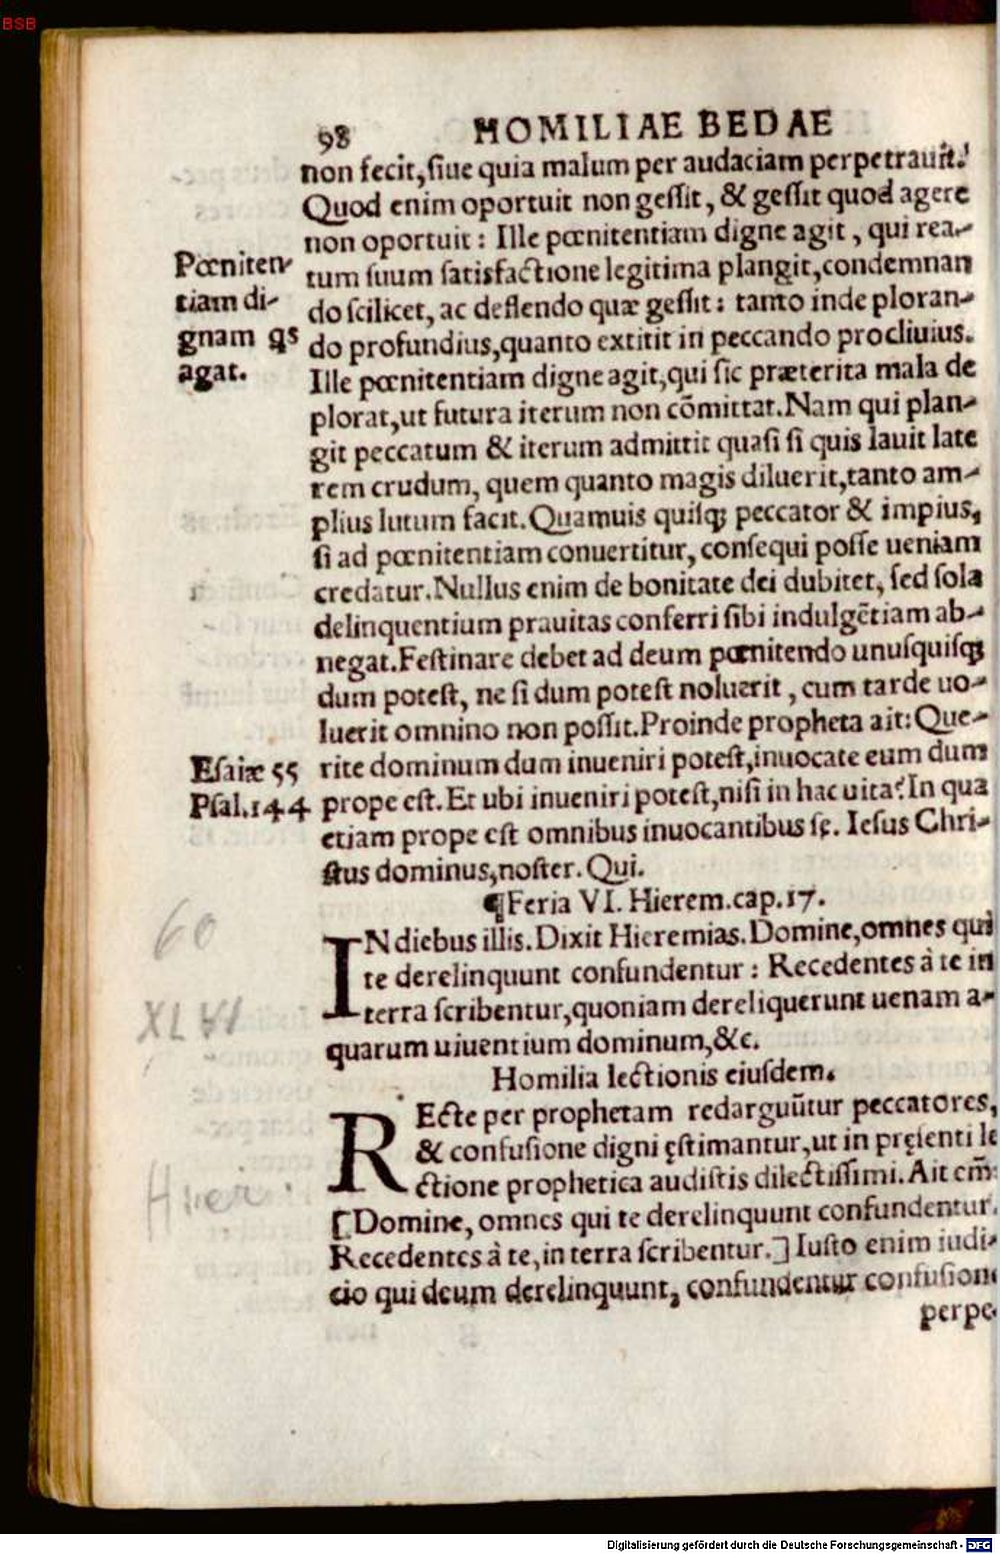 BSB
98 HOMILIAE BEDAE
non fecit, ſiue quia malum per audaciam perpetrauit.
Quod enim oportuit non geſſit, & geſſit quod agere
non oportuit: Ille pœnitentiam digne agit, qui rea-
tum ſuum ſatisfactione legitima plangit, condemnan
do ſcilicet, ac deflendo quæ geſſit: tanto inde ploran-
do profundius, quanto extitit in peccando procliuius.
Ille pœnitentiam digne agit, qui ſic præterita mala de
plorat, ut futura iterum non cōmittat. Nam qui plan-
git peccatum & iterum admittit quaſi ſi quis lauit late
rem crudum, quem quanto magis diluerit, tanto am-
plius lutum facit. Quamuis quiſqꝫ peccator & impius,
ſi ad pœnitentiam conuertitur, conſequi poſſe ueniam
credatur. Nullus enim de bonitate dei dubitet, ſed ſola
delinquentium prauitas conferri ſibi indulgētiam ab-
negat. Feſtinare debet ad deum pœnitendo unuſquiſqꝫ
dum poteſt, ne ſi dum poteſt noluerit, cum tarde uo-
luerit omnino non poſſit. Proinde propheta ait: Que-
rite dominum dum inueniri poteſt, inuocate eum dum
prope eſt. Et ubi inueniri poteſt, niſi in hac uita? In qua
etiam prope eſt omnibus inuocantibus ſę. Ieſus Chri-
ſtus dominus, noſter. Qui.
Pœniten-
tiam di-
gnam qs
agat.
Eſaiæ 55
Pſal. 144
¶Feria VI. Hierem. cap. 17.
IN diebus illis. Dixit Hieremias. Domine, omnes qui
te derelinquunt confundentur: Recedentes à te in
terra ſcribentur, quoniam dereliquerunt uenam a-
quarum uiuentium dominum, &c.
Homilia lectionis eiuſdem.
REcte per prophetam redarguūtur peccatores,
& confuſione digni ęſtimantur, ut in pręſenti le
ctione prophetica audiſtis dilectiſſimi. Ait em̄:
[Domine, omnes qui te derelinquunt confundentur.
Recedentes à te, in terra ſcribentur.] Iuſto enim iudi-
cio qui deum derelinquunt, confundentur confuſione
perpe-
60
XLVI
Hier.
Digitalisierung gefördert durch die Deutsche Forschungsgemeinschaft - DFG